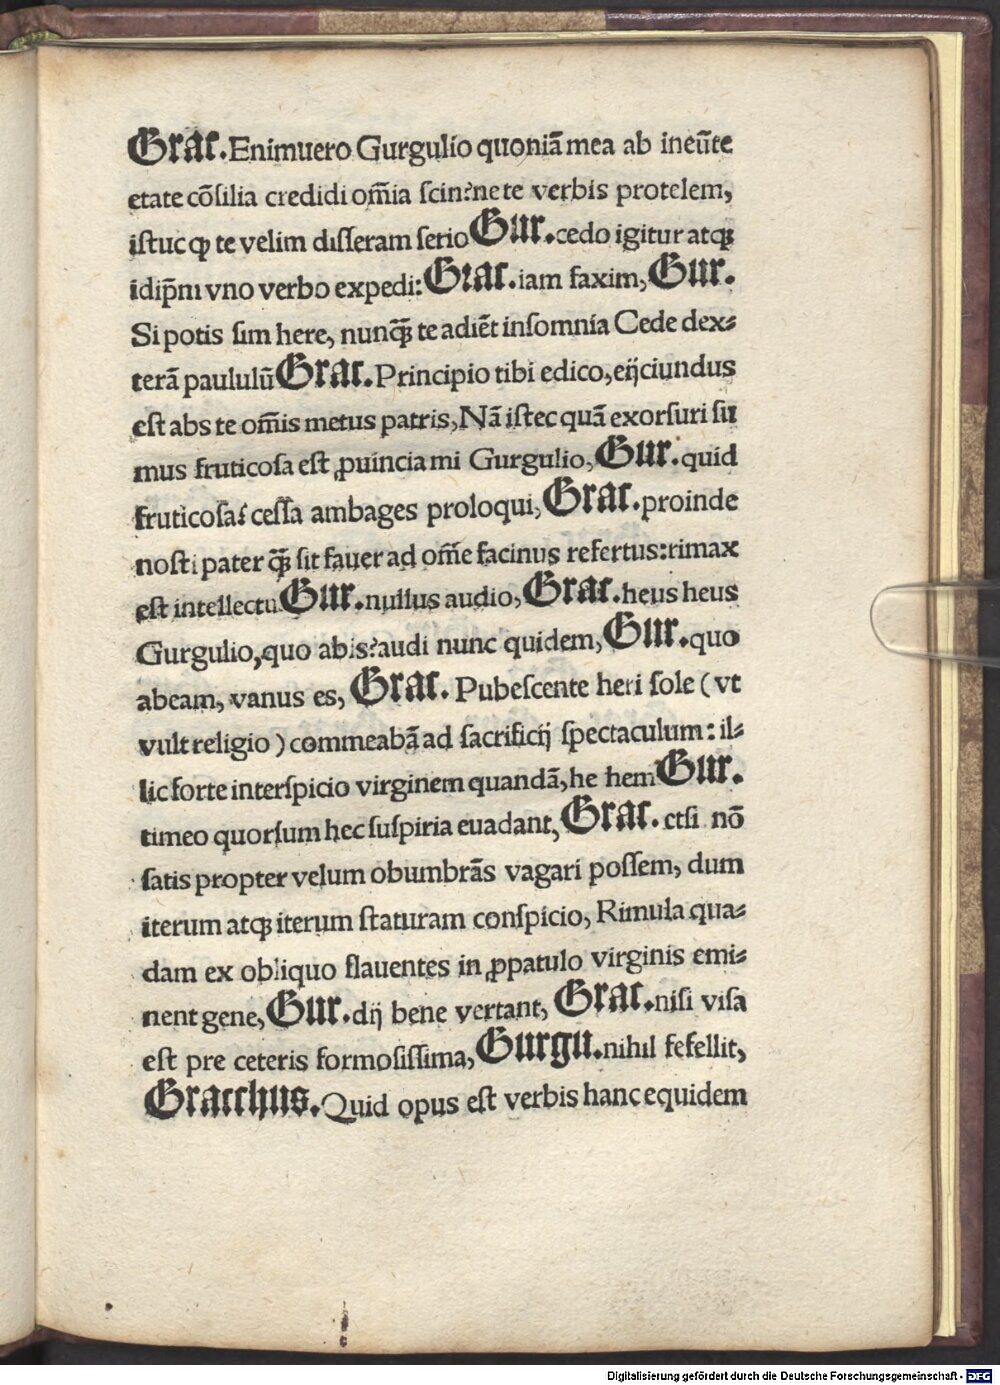 Grac. Enimuero Gurgulio quoniā mea ab ineūte
etate cōsilia credidi om̄ia scin?ne te verbis protelem,
istuc ꝙ te velim disseram serio Gur. cedo igitur atqꝫ
idip̄m vno verbo expedi: Grac. iam faxim, Gur.
Si potis sim here, nunꝗ̄ te adiēt insomnia Cede dex⸗
terā paululū Grac. Principio tibi edico, eijciundus
est abs te om̄is metus patris, Nā istec quā exorsuri su
mus fruticosa est ꝓuincia mi Gurgulio, Gur. quid
fruticosa? cessa ambages proloqui, Grac. proinde
nosti pater ꝗ̄ sit fauer ad om̄e facinus refertus: rimax
est intellectu Gur. nullus audio, Grac. heus heus
Gurgulio, quo abis? audi nunc quidem, Gur. quo
abeam, vanus es, Grac. Pubescente heri sole ( vt
vult religio ) commeabā ad sacrificij spectaculum: il⸗
lic forte interspicio virginem quandā, he hem Gur.
timeo quorsum hec suspiria euadant, Grac. etsi nō
satis propter velum obumbrās vagari possem, dum
iterum atqꝫ iterum staturam conspicio, Rimula qua⸗
dam ex obliquo flauentes in ꝓpatulo virginis emi⸗
nent gene, Gur. dij bene vertant, Grac. nisi visa
est pre ceteris formosissima, Gurgu. nihil fefellit,
Gracchus. Quid opus est verbis hanc equidem
Digitalisierung gefördert durch die Deutsche Forschungsgemeinschaft - DFG